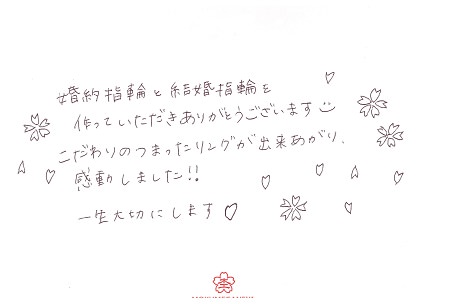 婚約指輪と結婚指輪を
作っていただきありがとうございます
こだわりのつまったリングが出来あがり、
感動しました!!
一生大切にします♡